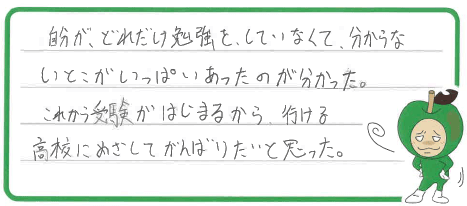 自分が、どれだけ勉強を、していなくて、分からな
いとこがいっぱいあったのが分かった。
これから受験がはじまるから、行ける
高校にめざしてがんばりたいと思った。